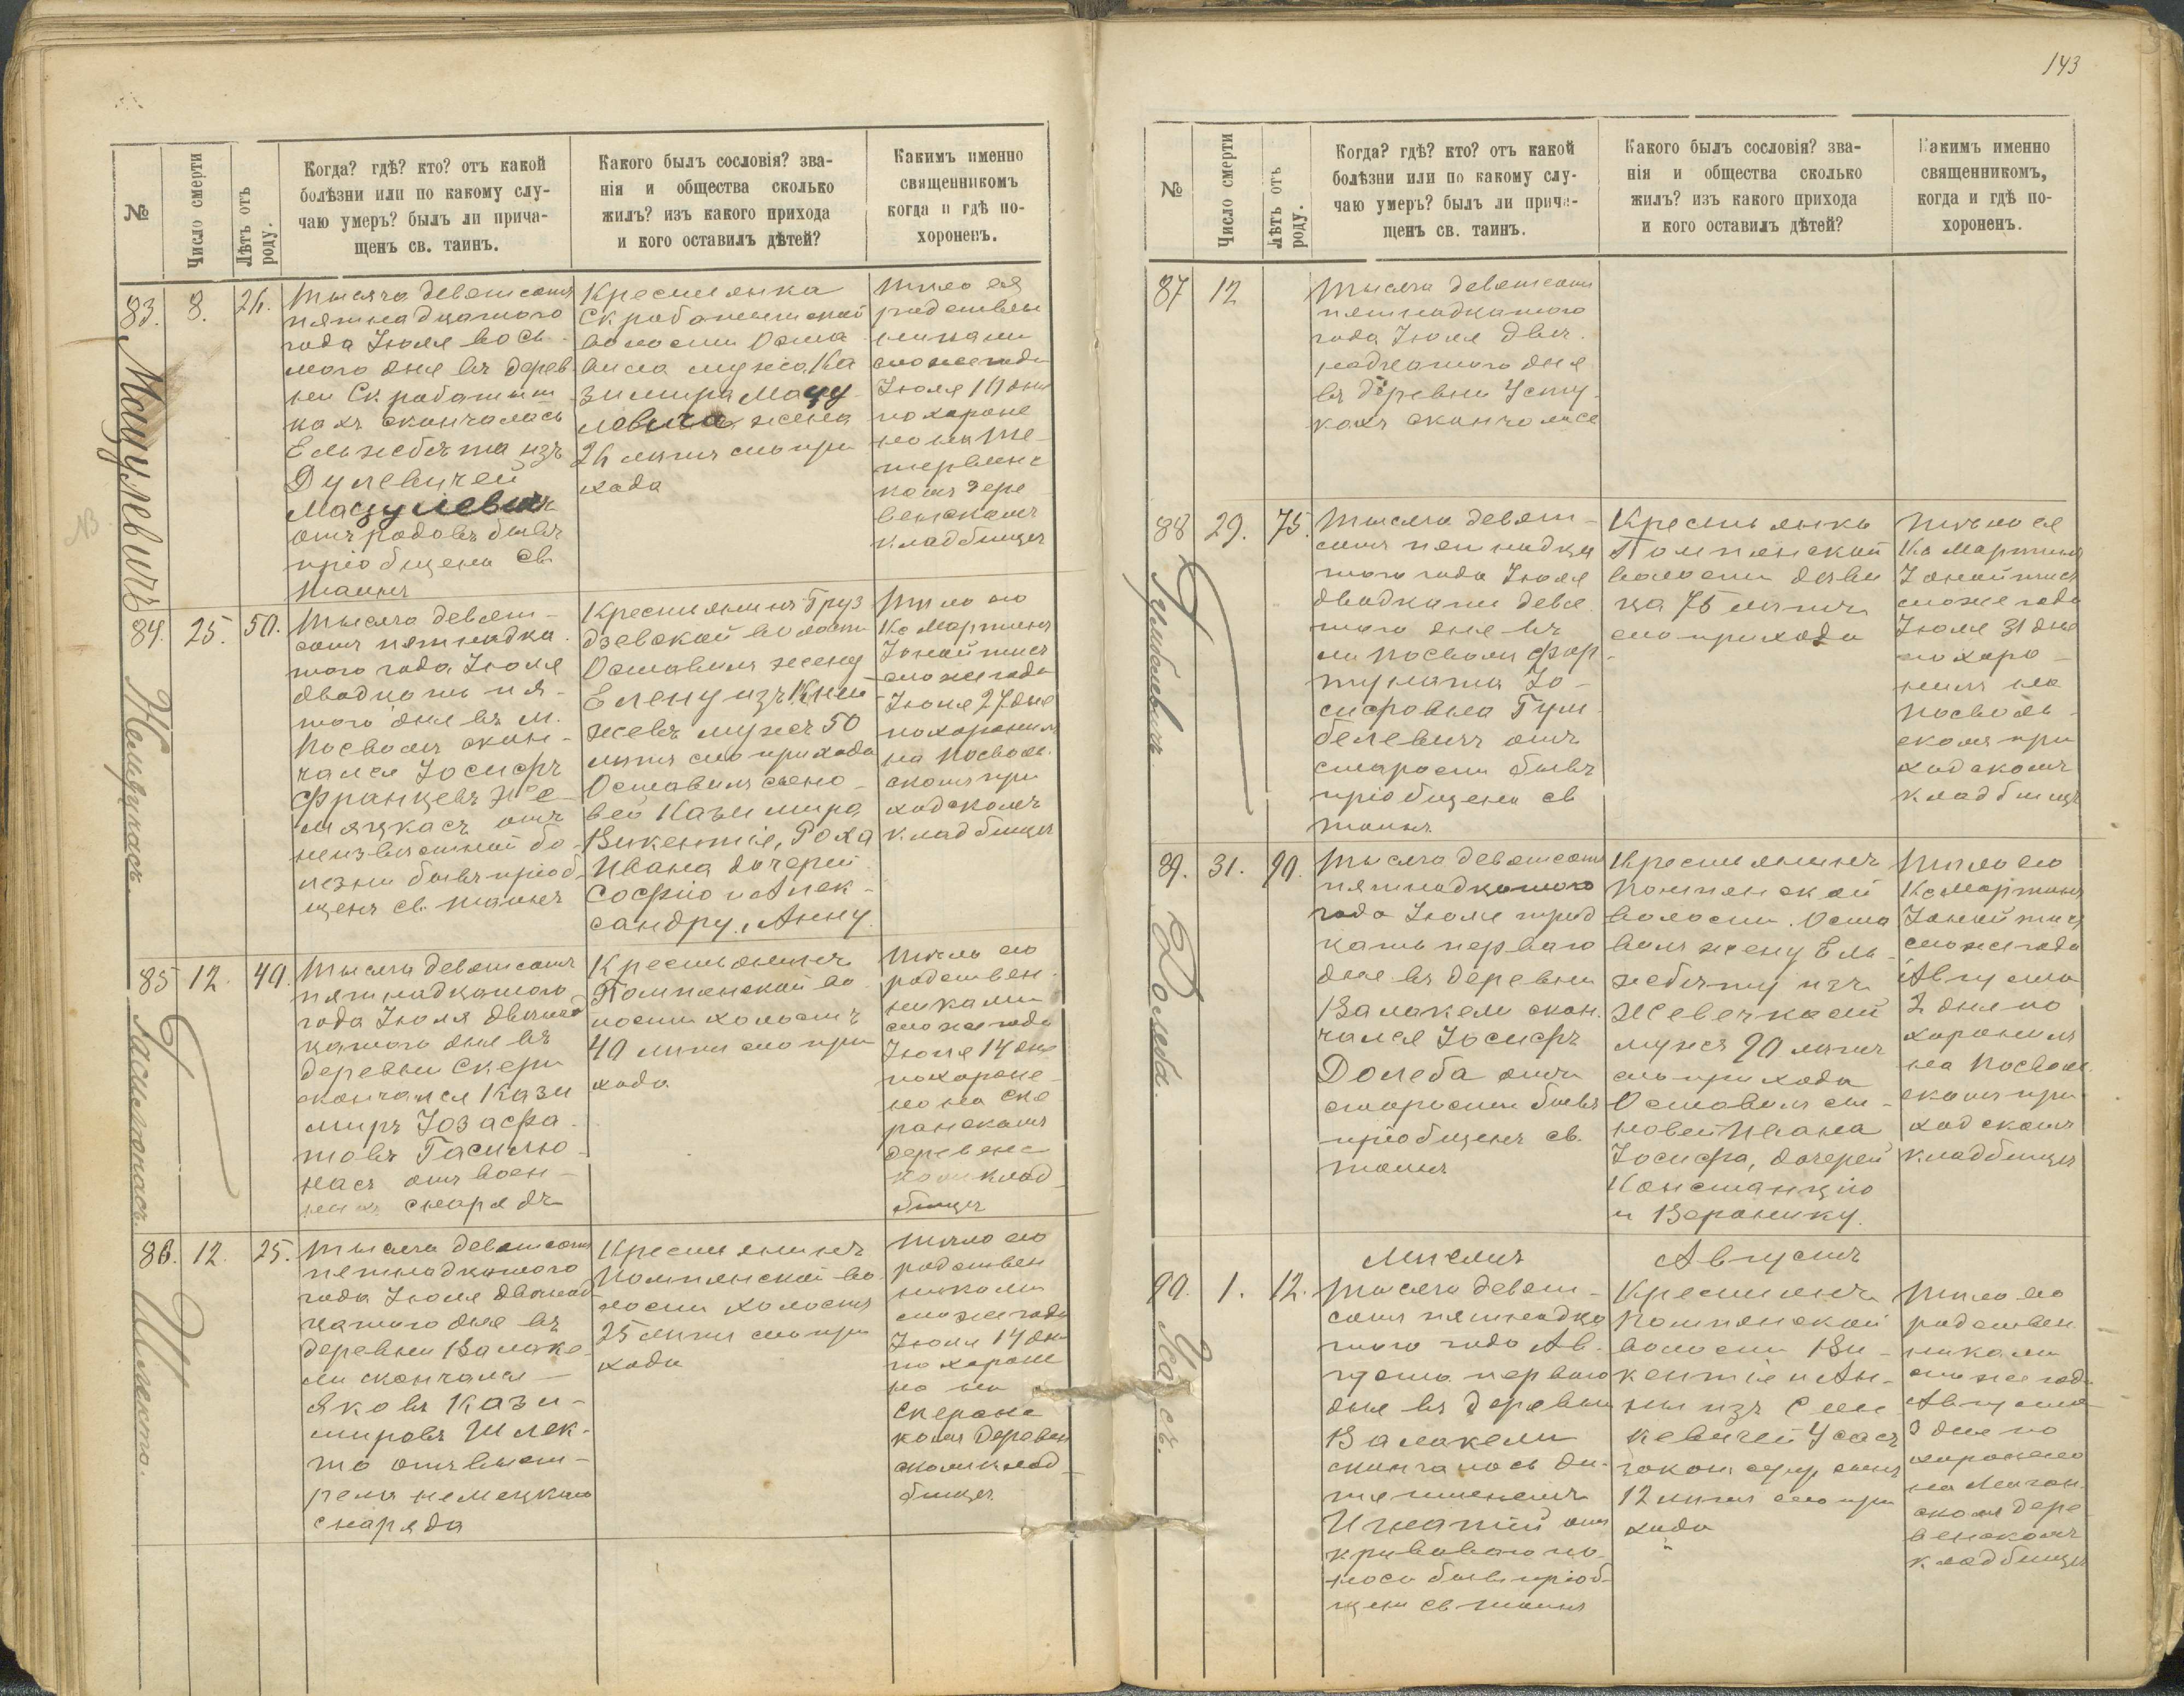 143
№
Число смерти
Лѣтъ отъ роду.
Когда? гдѣ? кто? отъ какой
болѣзни или по какому слу-
чаю умеръ? былъ ли прича-
щенъ св. таинъ.
Какого былъ сословія? зва-
нія и общества сколько
жилъ? изъ какого прихода
и кого оставилъ дѣтей?
Какимъ именно
священникомъ
когда и гдѣ по-
хороненъ.
83.
Мацулевичъ
8.
26.
Тысяча девятсотъ
пятнадцатого
года Іюля вось
мого дня въ дерев
ни Скработиш
кахъ скончалась
Ельжбѣта изъ
Дулевичей
Мацулевичъ
отъ родовъ бывъ
пріобщена св.
таинъ
Крестьянка
Скработишской
волости Оста
вила мужа Ка
зимира Мацу
левича жена
26 лѣтъ сего при
хода
Тѣло ея
родствен
никами
сего же года
Іюля 10 дня
похороне
но на
комъ дере
венскомъ
кладбищѣ
84.
25.
50.
Тысяча девят-
сотъ пятнадца
того года Іюля
двадцать пя-
того дня въ м.
Посволѣ скон-
чался Іосифъ
Францевъ Же-
мяцкасъ отъ
неизвѣстной бо-
лезни бывъ пріоб-
щенъ св. таинъ
Крестьянинъ Груз
дзевской волости
Оставилъ жену
Елену изъ
жевъ мужъ 50
лѣтъ сего прихода
Оставилъ сыно-
вей Казимира
Викентія, Роха
Ивана дочерей
Софію и Алек-
сандру, Анну.
Тѣло его
Кс Мартинъ
Іонайтисъ
сего же года
Іюля 27 дня
похоронилъ
на Посволь
скомъ при
ходскомъ
кладбищѣ
85
Гасилюнасъ
12.
40.
Тысяча девятсотъ
пятнадцатого
года Іюля двѣнад
цатого дня въ
деревни Скери
скончался Кази
миръ Іозафа
товъ Гасилю
насъ отъ воен-
ныхъ снарядъ
Крестьянинъ
Помпянской во
лости холостъ
40 лѣтъ сего при
хода
Тѣло его
родствен
никами
сего же года
Іюля 14 дня
похороне
но на Ске
ранскомъ
деревенс
комъ клад
бищѣ
86.
Шлекто.
12.
25.
Тысяча девятсотъ
пятнадцатого
года Іюля двѣнад
цатого дня въ
деревни Валаке
ли скончался
Яковъ Кази-
мировъ Шлек-
то отъ выст-
рела немецкаго
снаряда
Крестьянинъ
Помпянской во
лости холостъ
25 лѣтъ сего при
хода
Тѣло его
родствен
никами
сего же года
Іюля 14 дня
похороне
но на
Скеранс
комъ деревен
скомъ клад
бищѣ
№
Число смерти
Лѣтъ отъ роду.
Когда? гдѣ? кто? отъ какой
болѣзни или по какому слу-
чаю умеръ? былъ ли прича-
щенъ св. таинъ.
Какого былъ сословія? зва-
нія и общества сколько
жилъ? изъ какого прихода
и кого оставилъ дѣтей?
Какимъ именно
священникомъ,
когда и гдѣ по-
хороненъ.
87
12
Тысяча девятсотъ
пятнадцатого
года Іюля двѣ
надцатого дня
въ деревни Усту
кахъ скончался
88
Гумбелевичъ
29.
75.
Тысяча девят-
сотъ пятнадца
того года Іюля
двадцати девя
того дня въ
м Посволи Фор
туната Іо-
сифовна Гум
белевичъ отъ
старости бывъ
пріобщена св
таинъ
Крестьянка
Помпянской
волости дѣви
ца 75 лѣтъ
сего прихода
Тѣло ея
Кс Мартинъ
Іонайтисъ
сего же года
Іюля 31 дня
похоро-
нилъ на
Посволь-
скомъ при
ходскомъ
кладбищѣ
89.
Долеба.
31.
90.
Тысяча девятсотъ
пятнадцатого
года Іюля трид
цать перваго
дня въ деревни
Валакели скон.
чался Іосифъ
Долеба отъ
старости бывъ
пріобщенъ св.
таинъ
Крестьянинъ
Помпянской
волости. Оста
вилъ жену Ель
жбѣту изъ
Жевечкасъ
мужъ 90 лѣтъ
сего прихода
Оставилъ сы-
новей Ивана
Іосифа, дочерей
Констанцію
и Веронику.
Тѣло его
Кс Мартинъ
Іонайтисъ
сего же года
Августа
2 дня по
хоронилъ
на Посволь
скомъ при
ходскомъ
кладбищѣ
Мѣсяцъ
Августъ
90.
Усасъ.
1.
12.
Тысяча девят-
сотъ пятнадца
того года Ав-
густа перваго
дня въ деревни
Валакели
скончалось ди-
тя именемъ
Игнатій отъ
криваваго по
носа бывъ пріоб-
щенъ св таинъ
Крестьянъ
Помпянской
волости Ви-
кентія и Ан-
ны изъ
кевичей Усасъ
закон. супр. сынъ
12 лѣтъ сего при
хода
Тѣло его
родствен
никами
сего же года
Августа
3 дня по
хоронено
на
скомъ дере
венскомъ
кладбищѣ